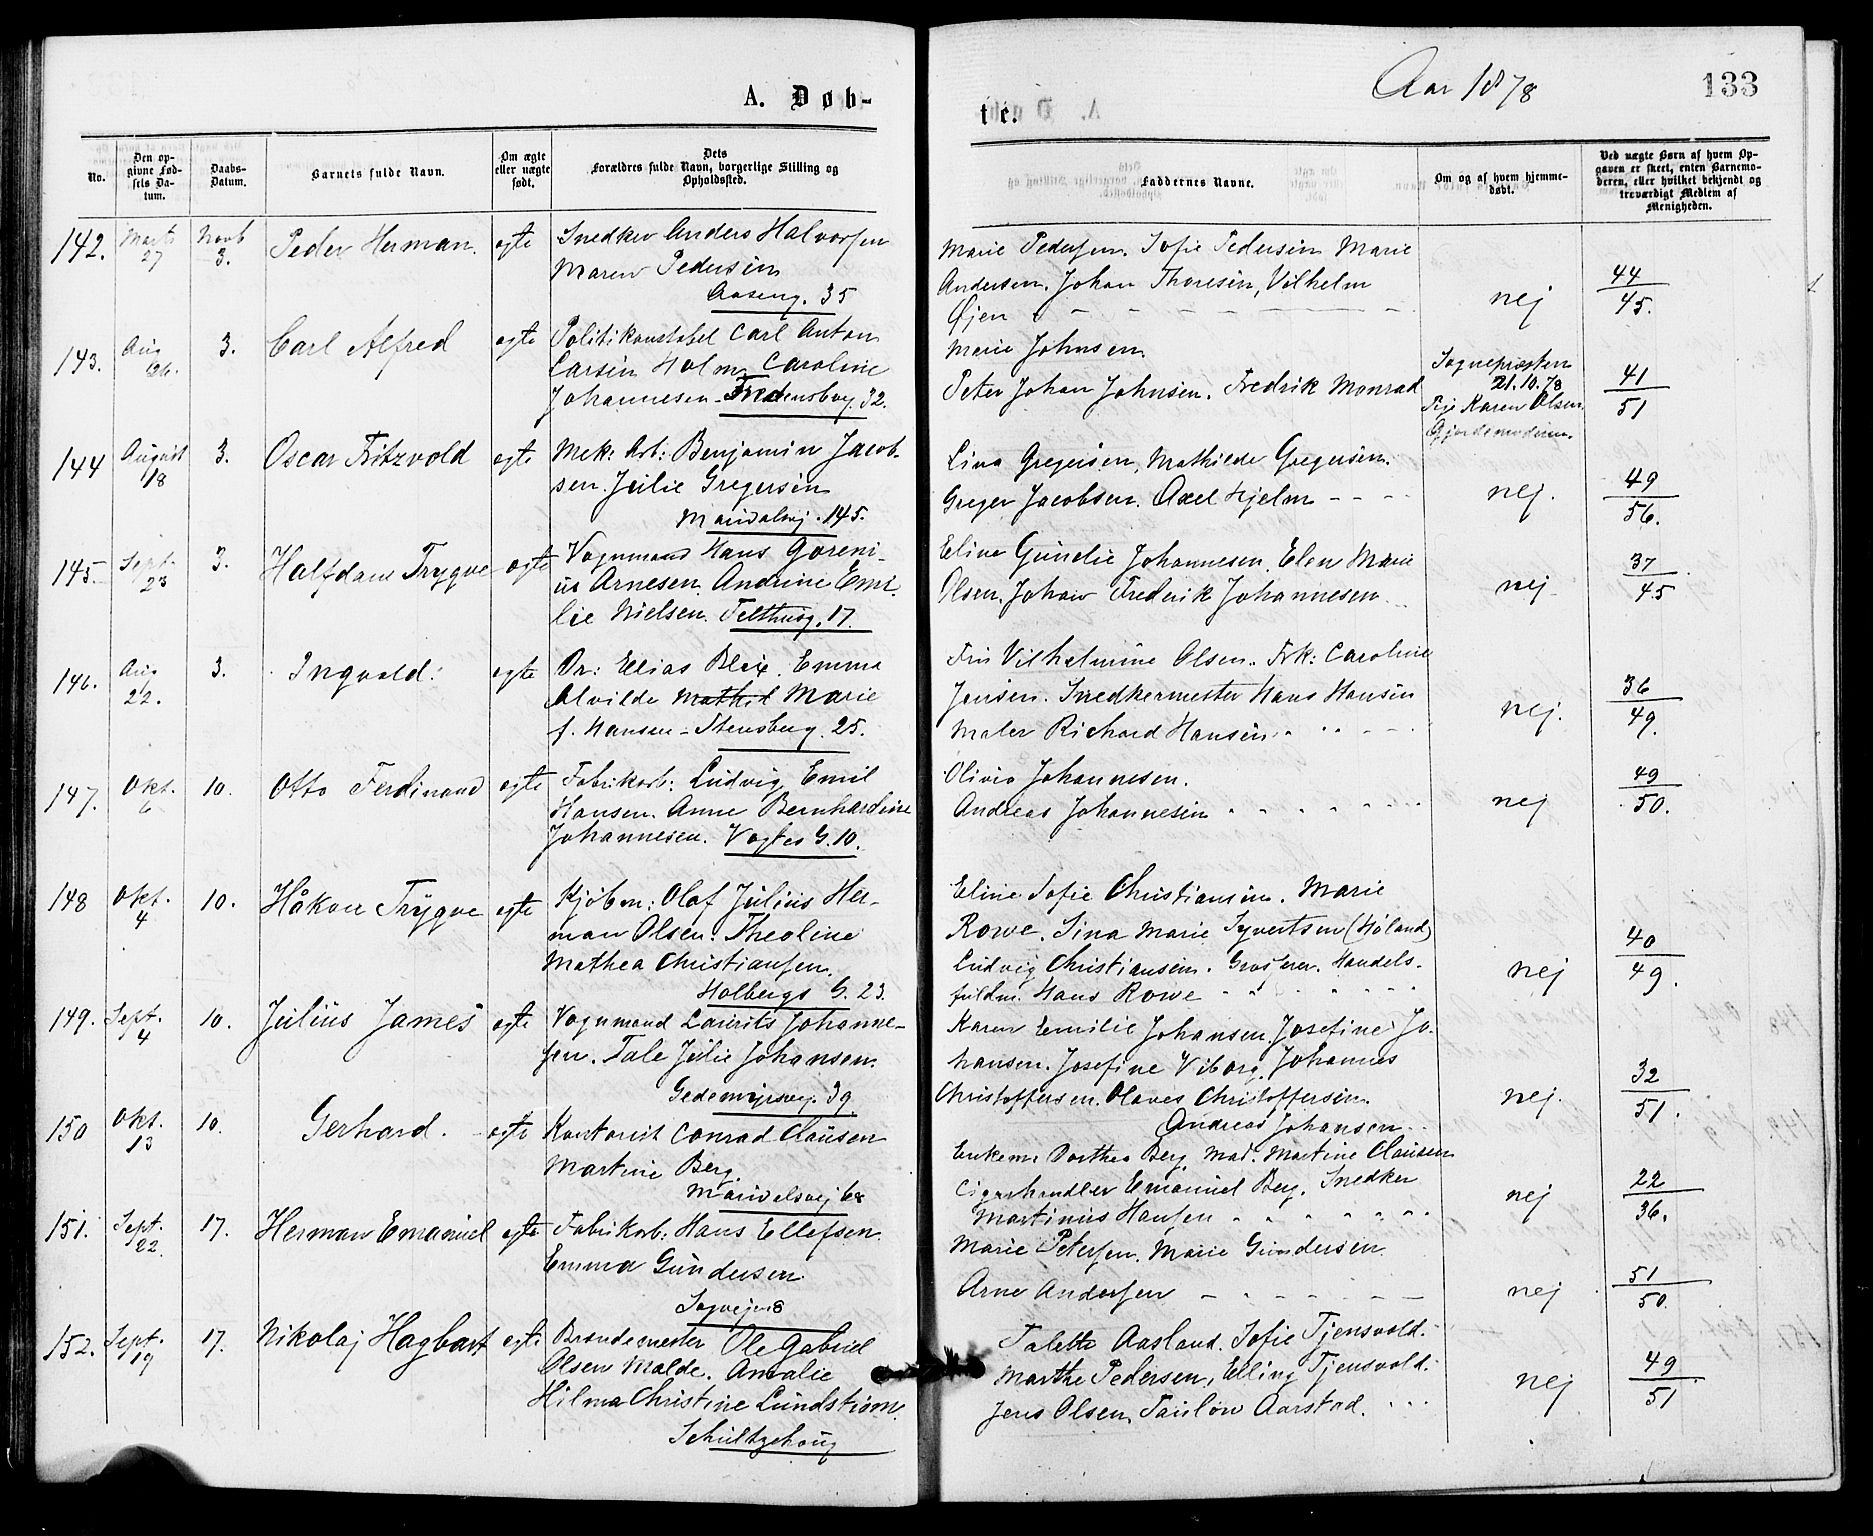 Aar 1878
133
A. Døb-
te.
No.
Den op-
givne Fød-
sels Da-
tum.
Daabs-
Datum.
Barnets fulde Navn.
Om ægte
eller uægte
født.
Dets
Forældres fulde Navn, borgerlige Stilling og
Opholdssted.
Faddernes Navne.
Om og af hvem hjemme-
døbt.
Ved uægte Børn af hvem Op-
gaven er skeet, enten Barnemo-
deren, eller hvilket bekjendt og
troværdigt Medlem af
Menigheden.
142. Marts 27 Novb 3. Peder Herman. egte
Snedker Anders Halvorsen
Maren Pedersen
Aaseng. 35
Marie Pedersen. Sofie Pedersen Marie
Andersen. Johan Thoresen, Vilhelm
Øjen
nej
44
45.
143. Aug 26. 3. Carl Alfred egte
Politikonstabel Carl Anton
Larsen Holm Caroline
Johannesen - Fredensborg. 32.
Marie Johnsen
Peter Johan Johnsen. Fredrik Monrad
Sognepresten
21.10.78
Karen Olsen
Gjordemoderen.
41
51
144 August 18 3. Oscar Fritzvold egte
Mek: Arb: Benjamin Jacob-
sen. Julie Gregersen
Maridalsvej. 145.
Lina Gregersen, Mathilde Gregersen.
Greger Jacobsen. Axel Hjelm
nej.
49
56.
145. Sept. 23 3. Halfdan Trygve egte
Vognmand Hans Goreni-
us Arnesen. Andrine Emi-
lie Nielsen. Telthusg. 17.
Eline Gundie Johannesen. Elen Marie
Olsen. Johan Frederik Johannesen
nej
37
45
146. Aug 22. 3. Ingvald. egte
Dr: Elias Blix. Emma
Alvilde Mathil Marie
f. Hansen - Stensberg. 25.
Fru Vilhelmine Olsen. Frk: Caroline
Jensen. Snedkermester Hans Hansen
Maler Richard Hansen
nej.
36
49.
147. Okt. 6 10. Otto Ferdinand egte
Fabrikarb: Ludvig Emil
Hansen. Anne Bernhardine
Johannesen. Vogtes G. 10.
Olivia Johannesen.
Andreas Johannesen
nej
49
50.
148 Okt. 4 10. Håkon Trygve egte
Kjøbm: Olaf Julius Her-
man Olsen. Theoline
Mathea Christiansen.
Holbergs G. 23.
Eline Sofie Christiansen. Marie
Rowe. Sina Marie Syvertsen (Høland)
Ludvig Christiansen. Grosserer. Handels-
fuldm. Hans Rowe
nej
40
49.
149. Sept. 4 10. Julius James egte
Vognmand Laurits Johanne-
sen. Tale Julie Johansen.
Gedemyrsvej. 39
Karen Emilie Johansen. Josefine Jo-
hansen. Josefine Viborg. Johannes
Christoffersen. Olaves Christoffersen.
Andreas Johansen
nej.
32
51.
150 Okt. 13 10. Gerhard. egte
Kontorist Conrad Clausen
Martine Berg.
Maridalsvej 68
Enkem. Dorthea Berg. Mad. Martine Clausen
Cigarhandler Emanuel Berg. Snedker
Martinus Hansen
nej
22
36.
151. Sept. 22. 17. Herman Emanuel egte
Fabrikarb: Hans Ellefsen.
Emma Gundersen
Sagvejen 8
Marie Petersen. Marie Gundersen
Arne Andersen
nej
51
50.
152. Sept. 19 17. Nikolaj Hagbart egte
Brandmester Ole Gabriel
Olsen Malde. Amalie
Hilma Christine Lundstrøm.
Schultzehaug
Talette Aasland. Sofie Tjensvold.
Marthe Pedersen, Elling Tjensvold.
Jens Olsen. Taulow Aarstad.
nej
49
51